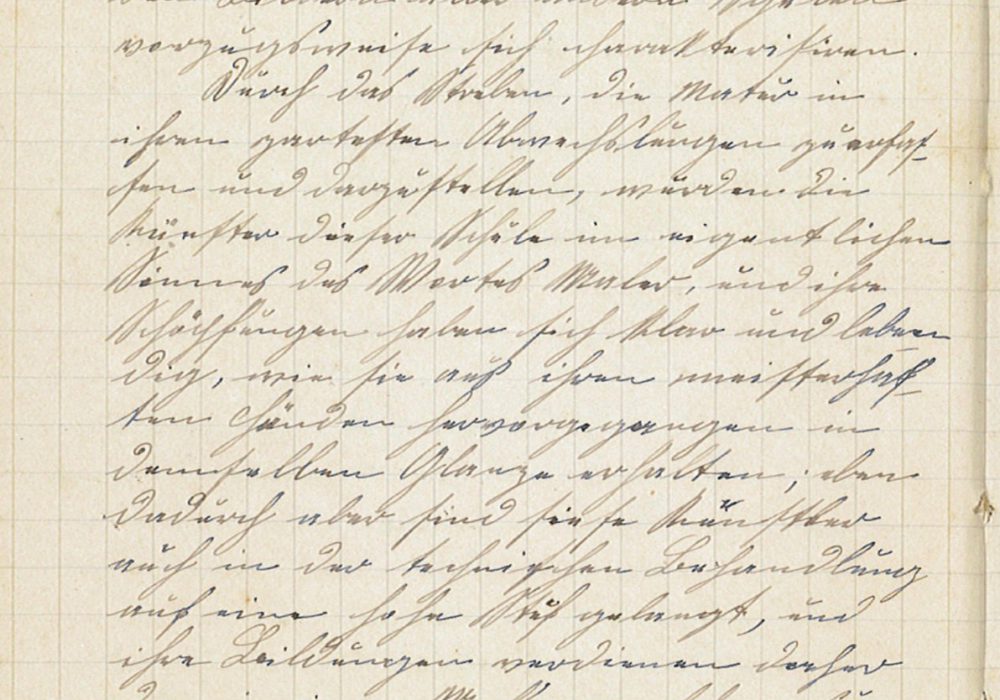 vorzugsweise sich charakterisiren.
Durch das Streben, die Natur in
ihren zartesten Abwechslungen zu erfas-
sen und darzustellen, wurden die
Künstler dieser Schule im eigentlichen
Sinnes des Wortes Maler, und ihre
Schöpfungen haben sich klar und leben
dig, wie sie aus ihren meisterhaf-
ten Händen hervorgegangen in
demselben Glanze erhalten; eben
dadurch aber sind diese Künstler
auch in der technischen Behandlung
auf eine hohe Stuf gelangt, und
ihre Bildungen verdienen daher